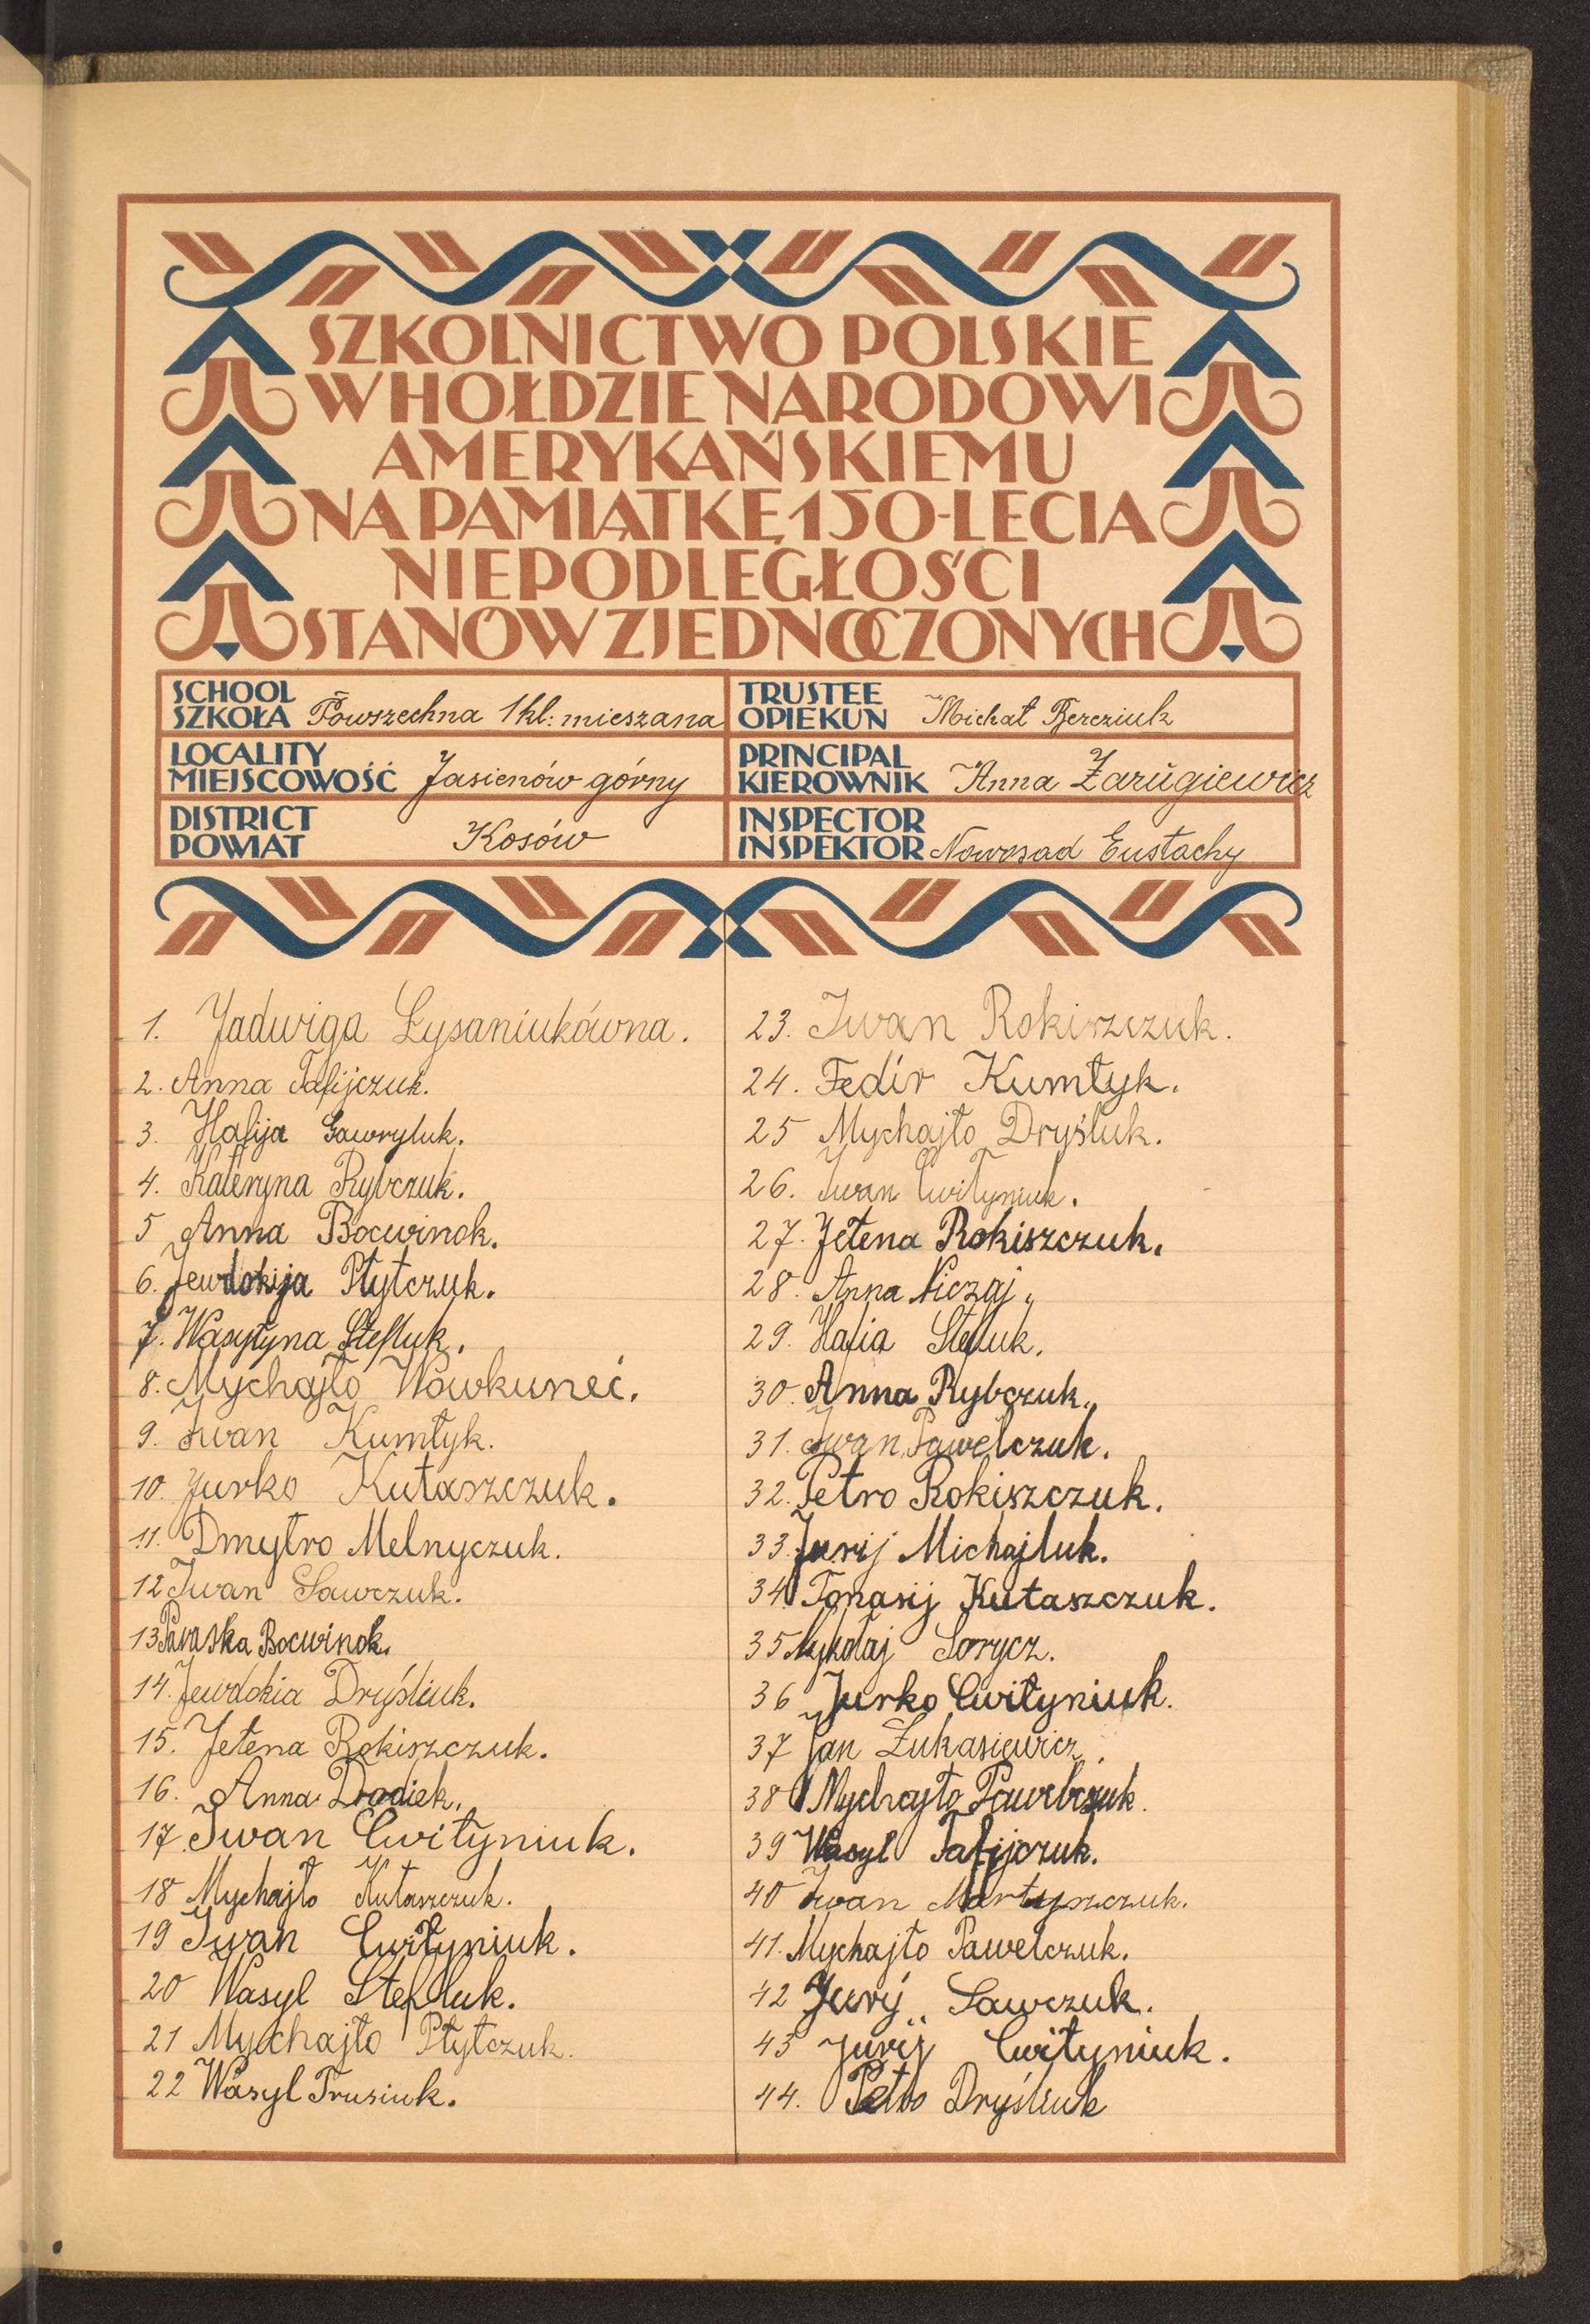 SZKOLNICTWO POLSKIE
W HOŁDZIE NARODOWI
AMERYKAŃSKIEMU
NA PAMIĄTKĘ 150-LECIA
NIEPODLEGŁOŚCI
STANÓW ZJEDNOCZONYCH
SCHOOL
SZKOŁA Powszechna 1 kl: mieszana
LOCALITY
MIEJSCOWOŚĆ Jasienów górny
DISTRICT
POWIAT Kosów
TRUSTEE
OPIEKUN Michał Bereziuk
PRINCIPAL
KIEROWNIK Anna Zarugiewicz
INSPECTOR
INSPEKTOR Nowosad Eustachy
1. Jadwiga Łysaniukówna.
2. Anna Tafijczuk.
3. Hafija Gawryluk.
4. Kateryna Rybczuk.
5 Anna Bocwinok.
6. Jewdokija Płytczuk.
7. Wasyłyna Stefluk.
8. Mychajło Wowkuneć.
9. Iwan Kumłyk.
10. Jurko Kutaszczuk.
11. Dmytro Melnyczuk.
12 Iwan Sawczuk.
13 Paraska Bocwinok.
14. Jewdokia Dryśliuk.
15. Jełena Rokiszczuk.
16. Anna Dradiek.
17. Iwan Cwiłyniuk.
18 Mychajło Kutaszczuk.
19 Iwan Cwiłyniuk.
20 Wasyl Stefluk.
21 Mychajło Płytczuk.
22 Wasyl Trusiuk.
23. Iwan Rokiszczuk.
24. Fedir Kumłyk.
25 Mychajło Dryśluk.
26. Iwan Cwiłyniuk.
27. Jełena Rokiszczuk.
28. Anna Niczaj.
29. Hafia Stefluk.
30. Anna Rybczuk.
31. Iwan Pawelczuk.
32. Petro Rokiszczuk.
33. Jurij Michajluk.
34. Tonasij Kutaszczuk.
35 Mykołaj Sorycz.
36 Jurko Cwiłyniuk.
37 Jan Łukasiewicz.
38 Mychajło Pawelczuk.
39 Wasyl Tafijczuk.
40 Iwan Martyszczuk.
41. Mychajło Pawelczuk.
42 Jurij Sawczuk.
43 Jurij Cwiłyniuk.
44. Petro Dryśliuk